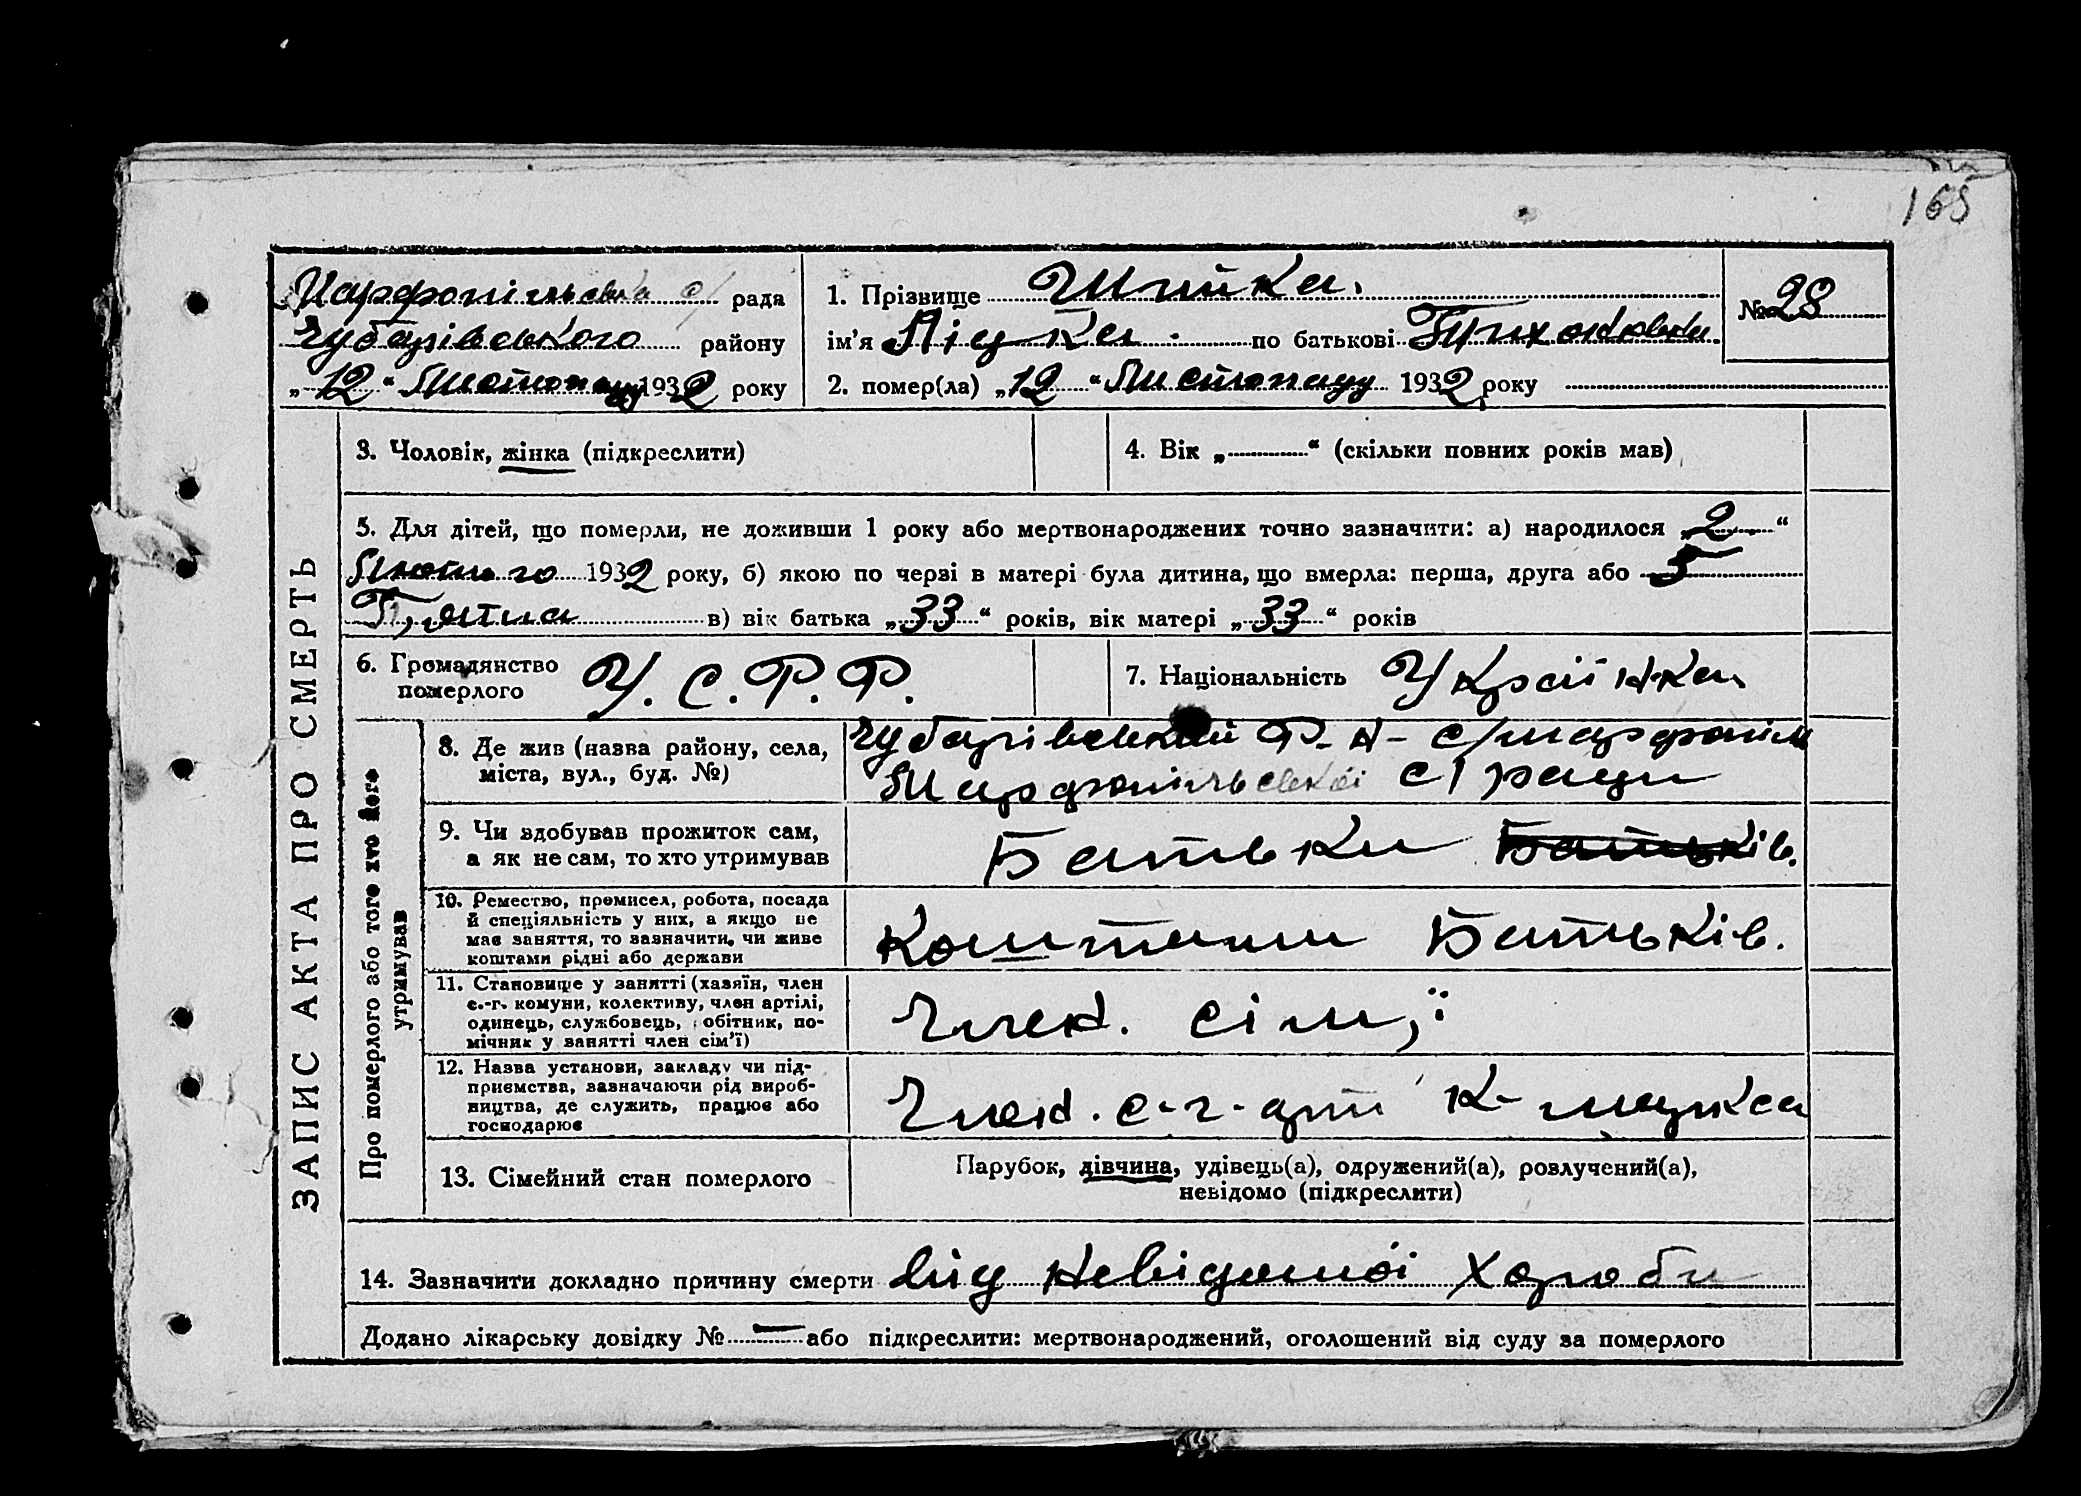 165
Марфопільська с/ рада
Чубарівського району
„12“ Листопаду 1932 року
1. Прізвище Шпика.
ім’я Лідка по батькові Тихоновна
2. помер(ла) „12“ Листопаду 1932 року
№ 28
ЗАПИС АКТА ПРО СМЕРТЬ
3. Чоловік, жінка (підкреслити)
4. Вік „ “ (скільки повних років мав)
5. Для дітей, що померли, не доживши 1 року або мертвонароджених точно зазначити: а) народилося „2“
Лютого 1932 року, б) якою по черзі в матері була дитина, що вмерла: перша, друга або 5
П,ята в) вік батька „33“ років, вік матері „33“ років
6. Громадянство
померлого
У. С. Р. Р.
7. Національність Українка
Про померлого або того хто його
утримував
8. Де жив (назва району, села,
міста, вул., буд. №)
Чубарівський Р-н- с/марфопіль
Марфопільської с/ ради
9. Чи здобував прожиток сам,
а як не сам, то хто утримував
Батьки Батьків.
10. Ремество, промисел, робота, посада
й спеціяльність у них, а якщо не
мав заняття, то зазначити, чи живе
коштами рідні або держави
Коштами Батьків.
11. Становище у занятті (хазяїн, член
с.-г. комуни, колективу, член артілі,
одинець, службовець, робітник, по-
мічник у занятті член сім’ї)
Член. сім,ї
12. Назва установи, закладу чи під-
приємства, зазначаючи рід вироб-
ництва, де служить, працює або
господарює
Член. с-г-арт К- маркса
13. Сімейний стан померлого
Парубок, дівчина, удівець(а), одружений(а), розлучений(а),
невідомо (підкреслити)
14. Зазначити докладно причину смерти від невідомої хороби
Додано лікарську довідку № — або підкреслити: мертвонароджений, оголошений від суду за померлого